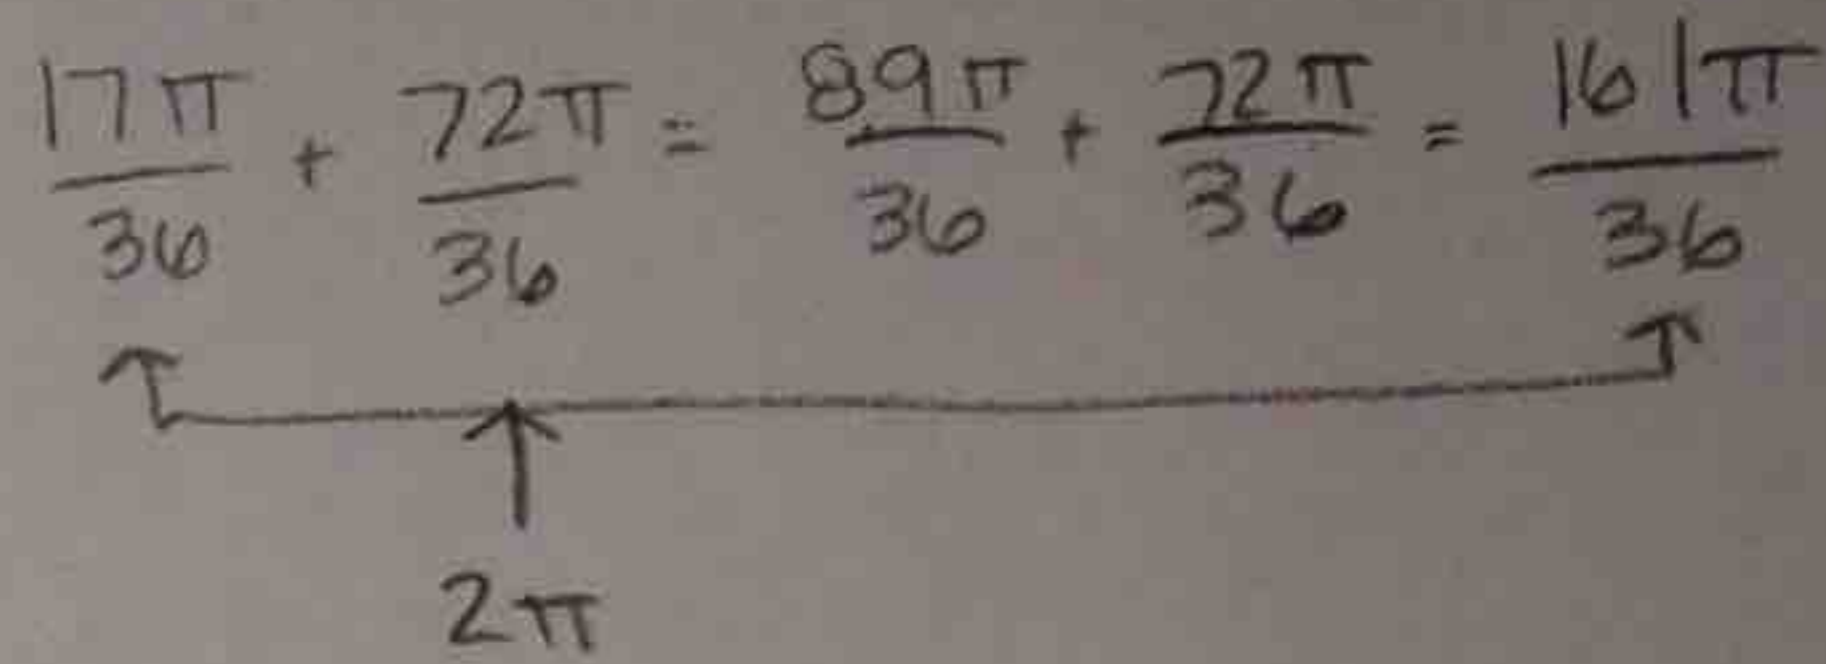 17π/36 + 72π/36 = 89π/36 + 72π/36 = 161π/36
2π